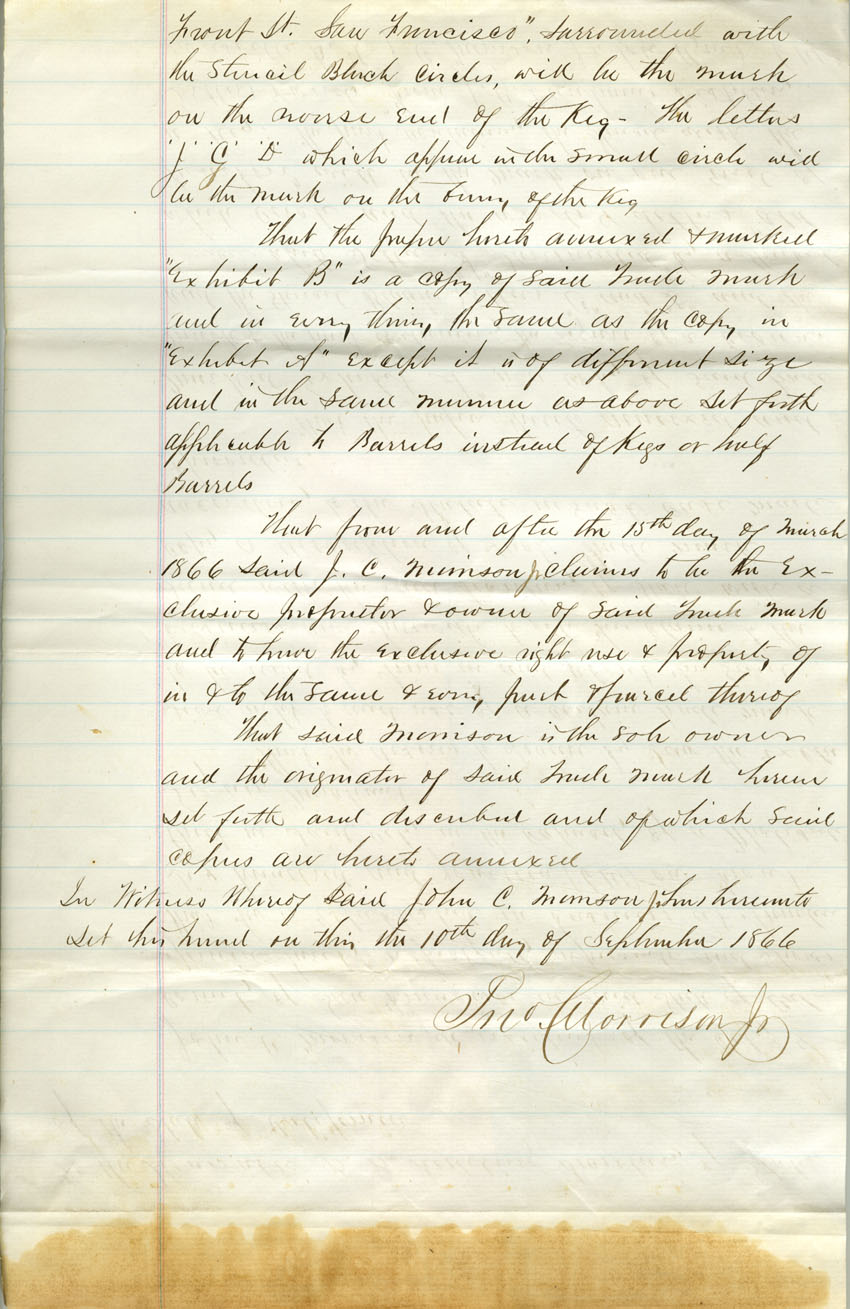 Front St. San Francisco", surrounded with
the Stencil Black circles, will be the mark
on the reverse End of the Keg - The letters
"J" "G" "D" which appear in the small circle will
be the mark on the bung of the Keg
That the paper hereto annexed & marked
"Exhibit B" is a copy of said Trade mark
and in every thing, the same as the copy in
"Exhibit A" Except it is of different size
and in the same manner as above set forth
applicable to Barrels instead of Kegs or half
Barrels
That from and after the 15th day of March
1866 said J. C. Morrison Jr claims to be the Ex-
clusive proprietor & owner of said Trade Mark
and to have the Exclusive right use & property of
in & to the same & every part & parcel thereof
That said Morrison is the sole owner
and the originator of said Trade mark herein
set forth and described and of which said
copies are hereto annexed
In Witness Whereof said John C. Morrison Jr has hereunto
set his hand on this the 10th day of September 1866
Jno. C Morrison Jr